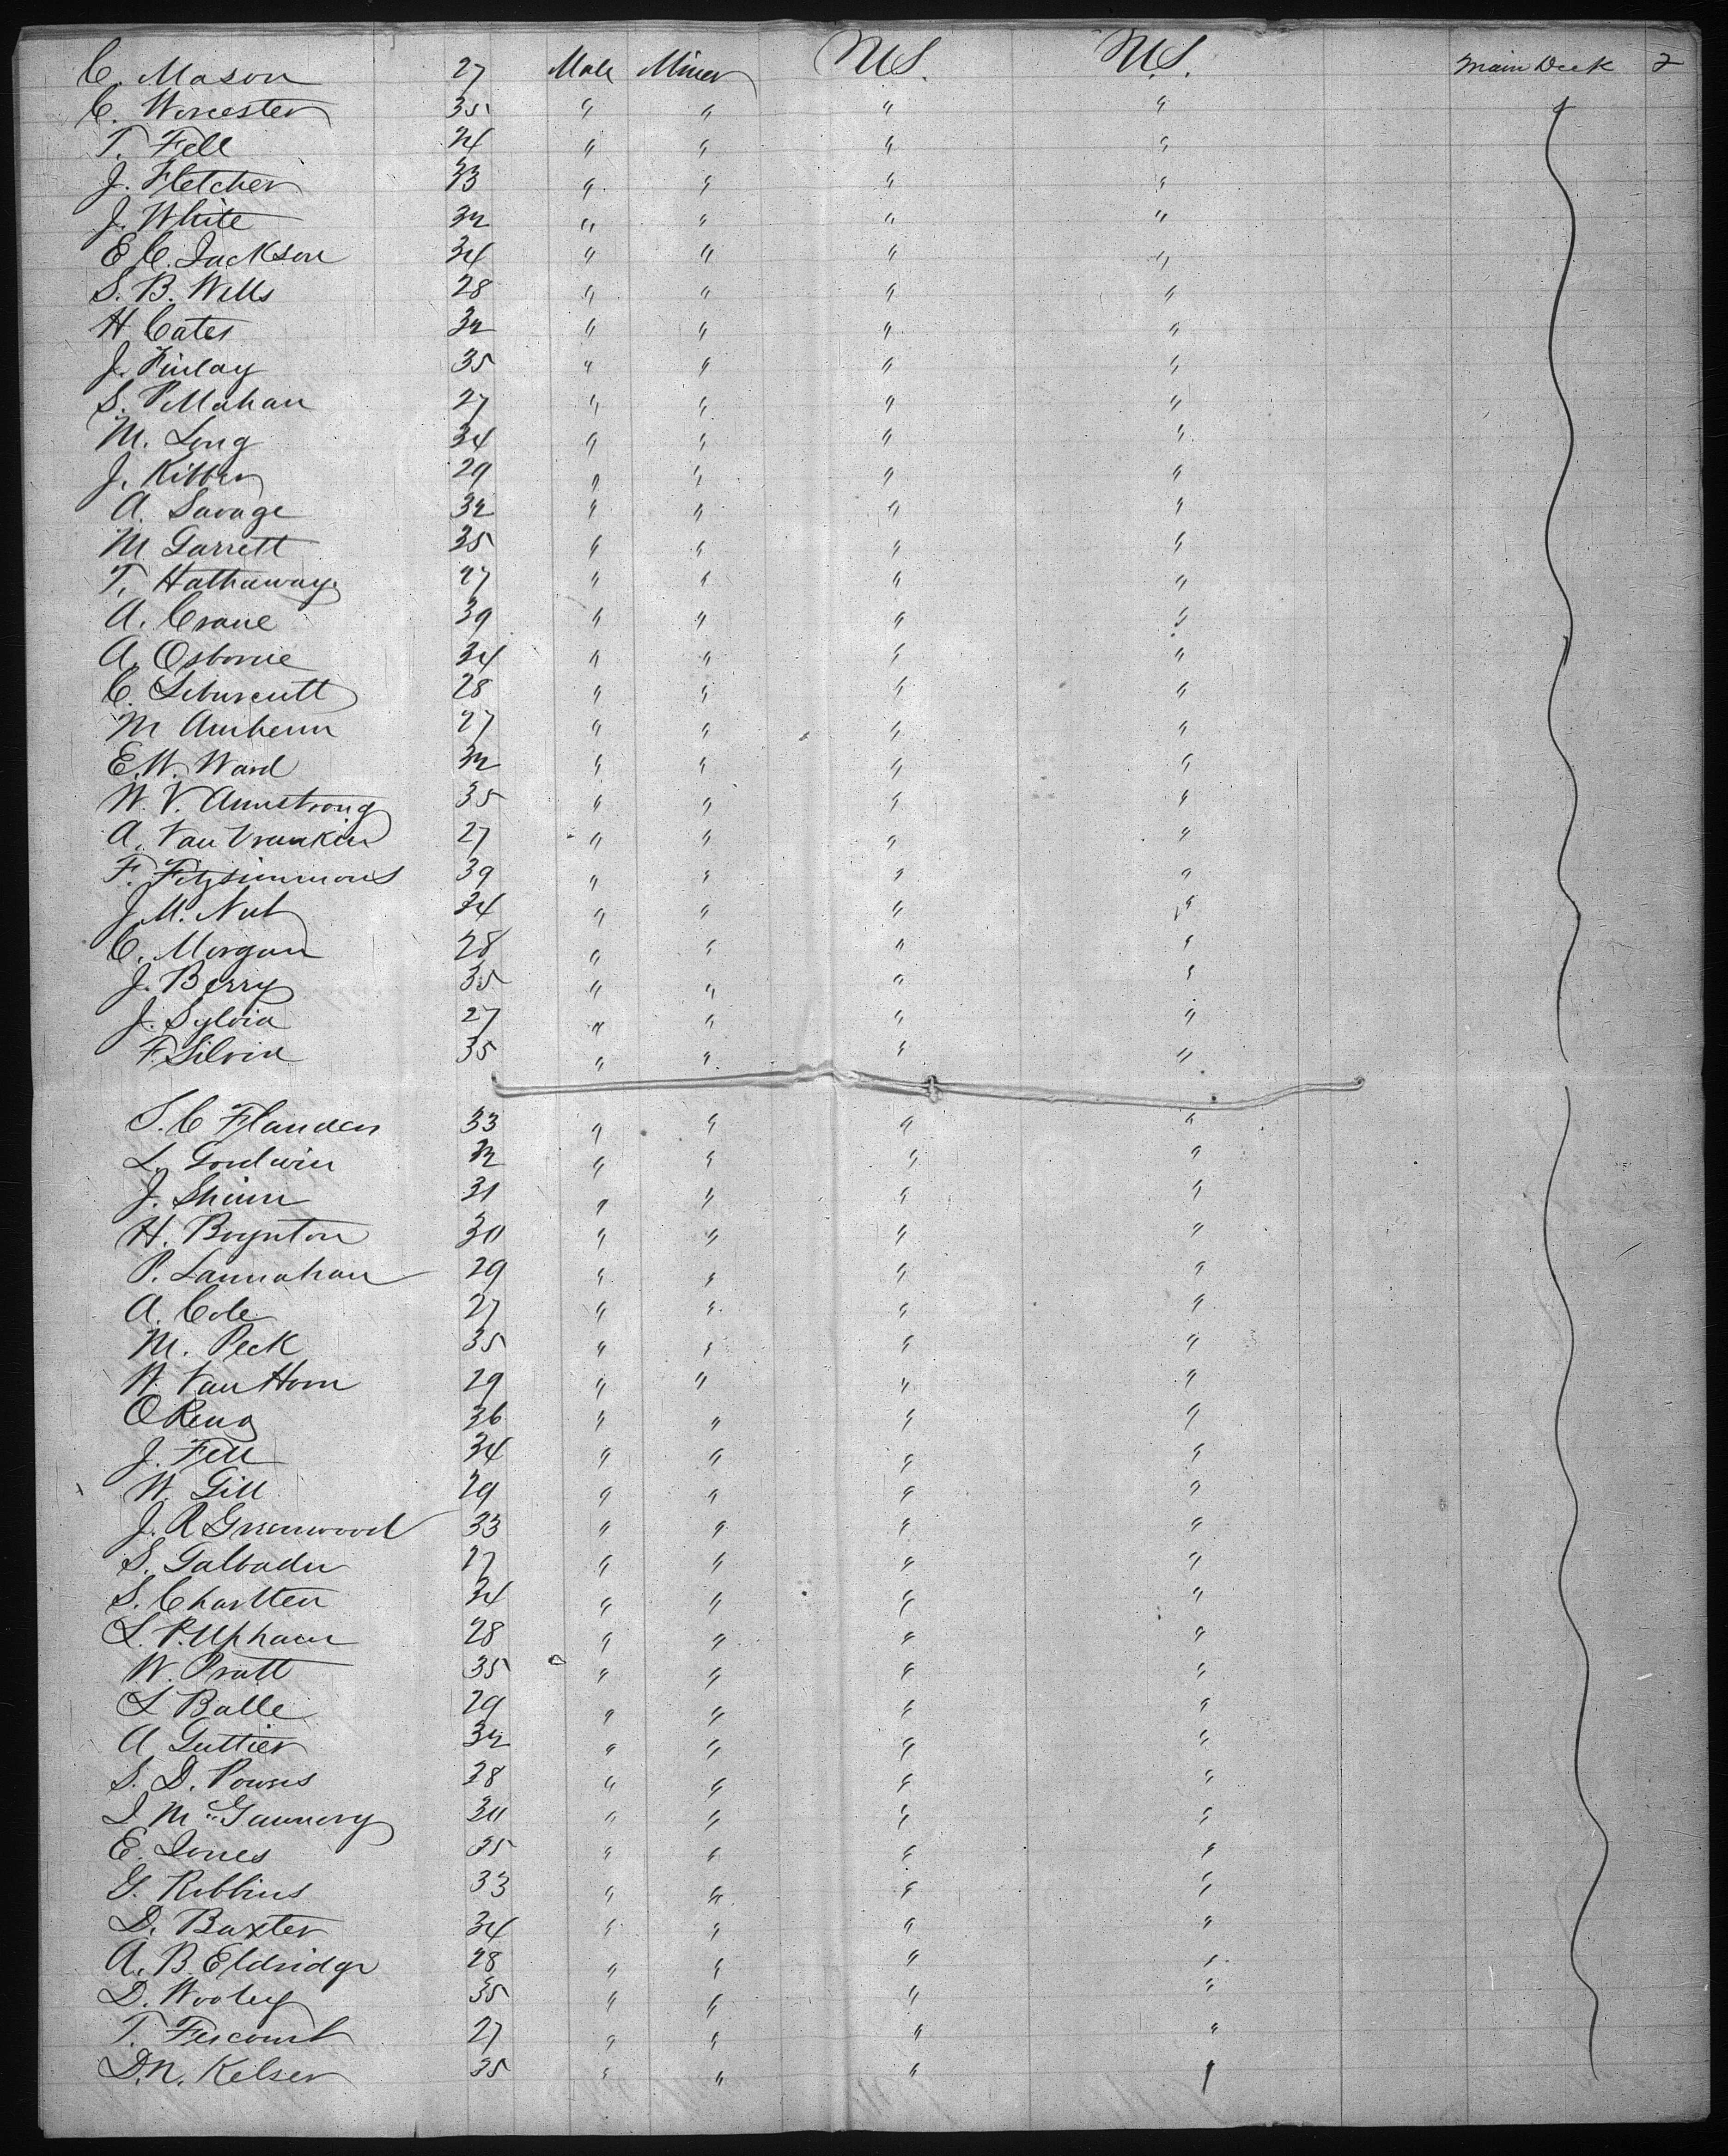 C. Mason 27 Male Miner U.S. U.S. Main Deck 2
C. Worcester 35 " " " "
T. Fell 24 " " " "
J. Fletcher 33 " " " "
J. White 32 " " " "
E. C. Jackson 34 " " " "
S. B. Wells 28 " " " "
H Cates 32 " " " "
J. Finlay 35 " " " "
S. P. Mahan 27 " " " "
M. Long 34 " " " "
J. Kibber 29 " " " "
A. Savage 32 " " " "
M Garrett 35 " " " "
T. Hathaway 27 " " " "
A. Crane 39 " " " "
A. Osborne 34 " " " "
C. 28 " " " "
M 27 " " " "
E. W. Ward 32 " " " "
W. V. Armstrong 35 " " " "
A. Van Vrankin 27 " " " "
F. Fitzsimmons 39 " " " "
J. M. 34 " " " "
C. Morgan 28 " " " "
J. Berry 35 " " " "
J. Sylvia 27 " " " "
F. Silvia 35 " " " "
S. C Flanders 33 " " " "
L. Goodwin 32 " " " "
J. Shinn 31 " " " "
H. Boynton 30 " " " "
P. Lannahan 29 " " " "
A. Cole 27 " " " "
M. Peck 35 " " " "
W. Van Horn 29 " " " "
O Reng 36 " " " "
J. Fell 34 " " " "
W. Gill 29 " " " "
J. R Greenwood 33 " " " "
S. 27 " " " "
S. Charlten 34 " " " "
L. P. Upham 28 " " " "
W. Pratt 35 " " " "
L Balle 29 " " " "
A Guttier 32 " " " "
S. D. Powers 28 " " " "
J. McGannery 30 " " " "
E. Jones 35 " " " "
G. Robbins 33 " " " "
D. Baxter 34 " " " "
A. B. Eldridge 28 " " " "
D. Wooley 35 " " " "
T. 27 " " " "
D. N. Kelser 35 " " "